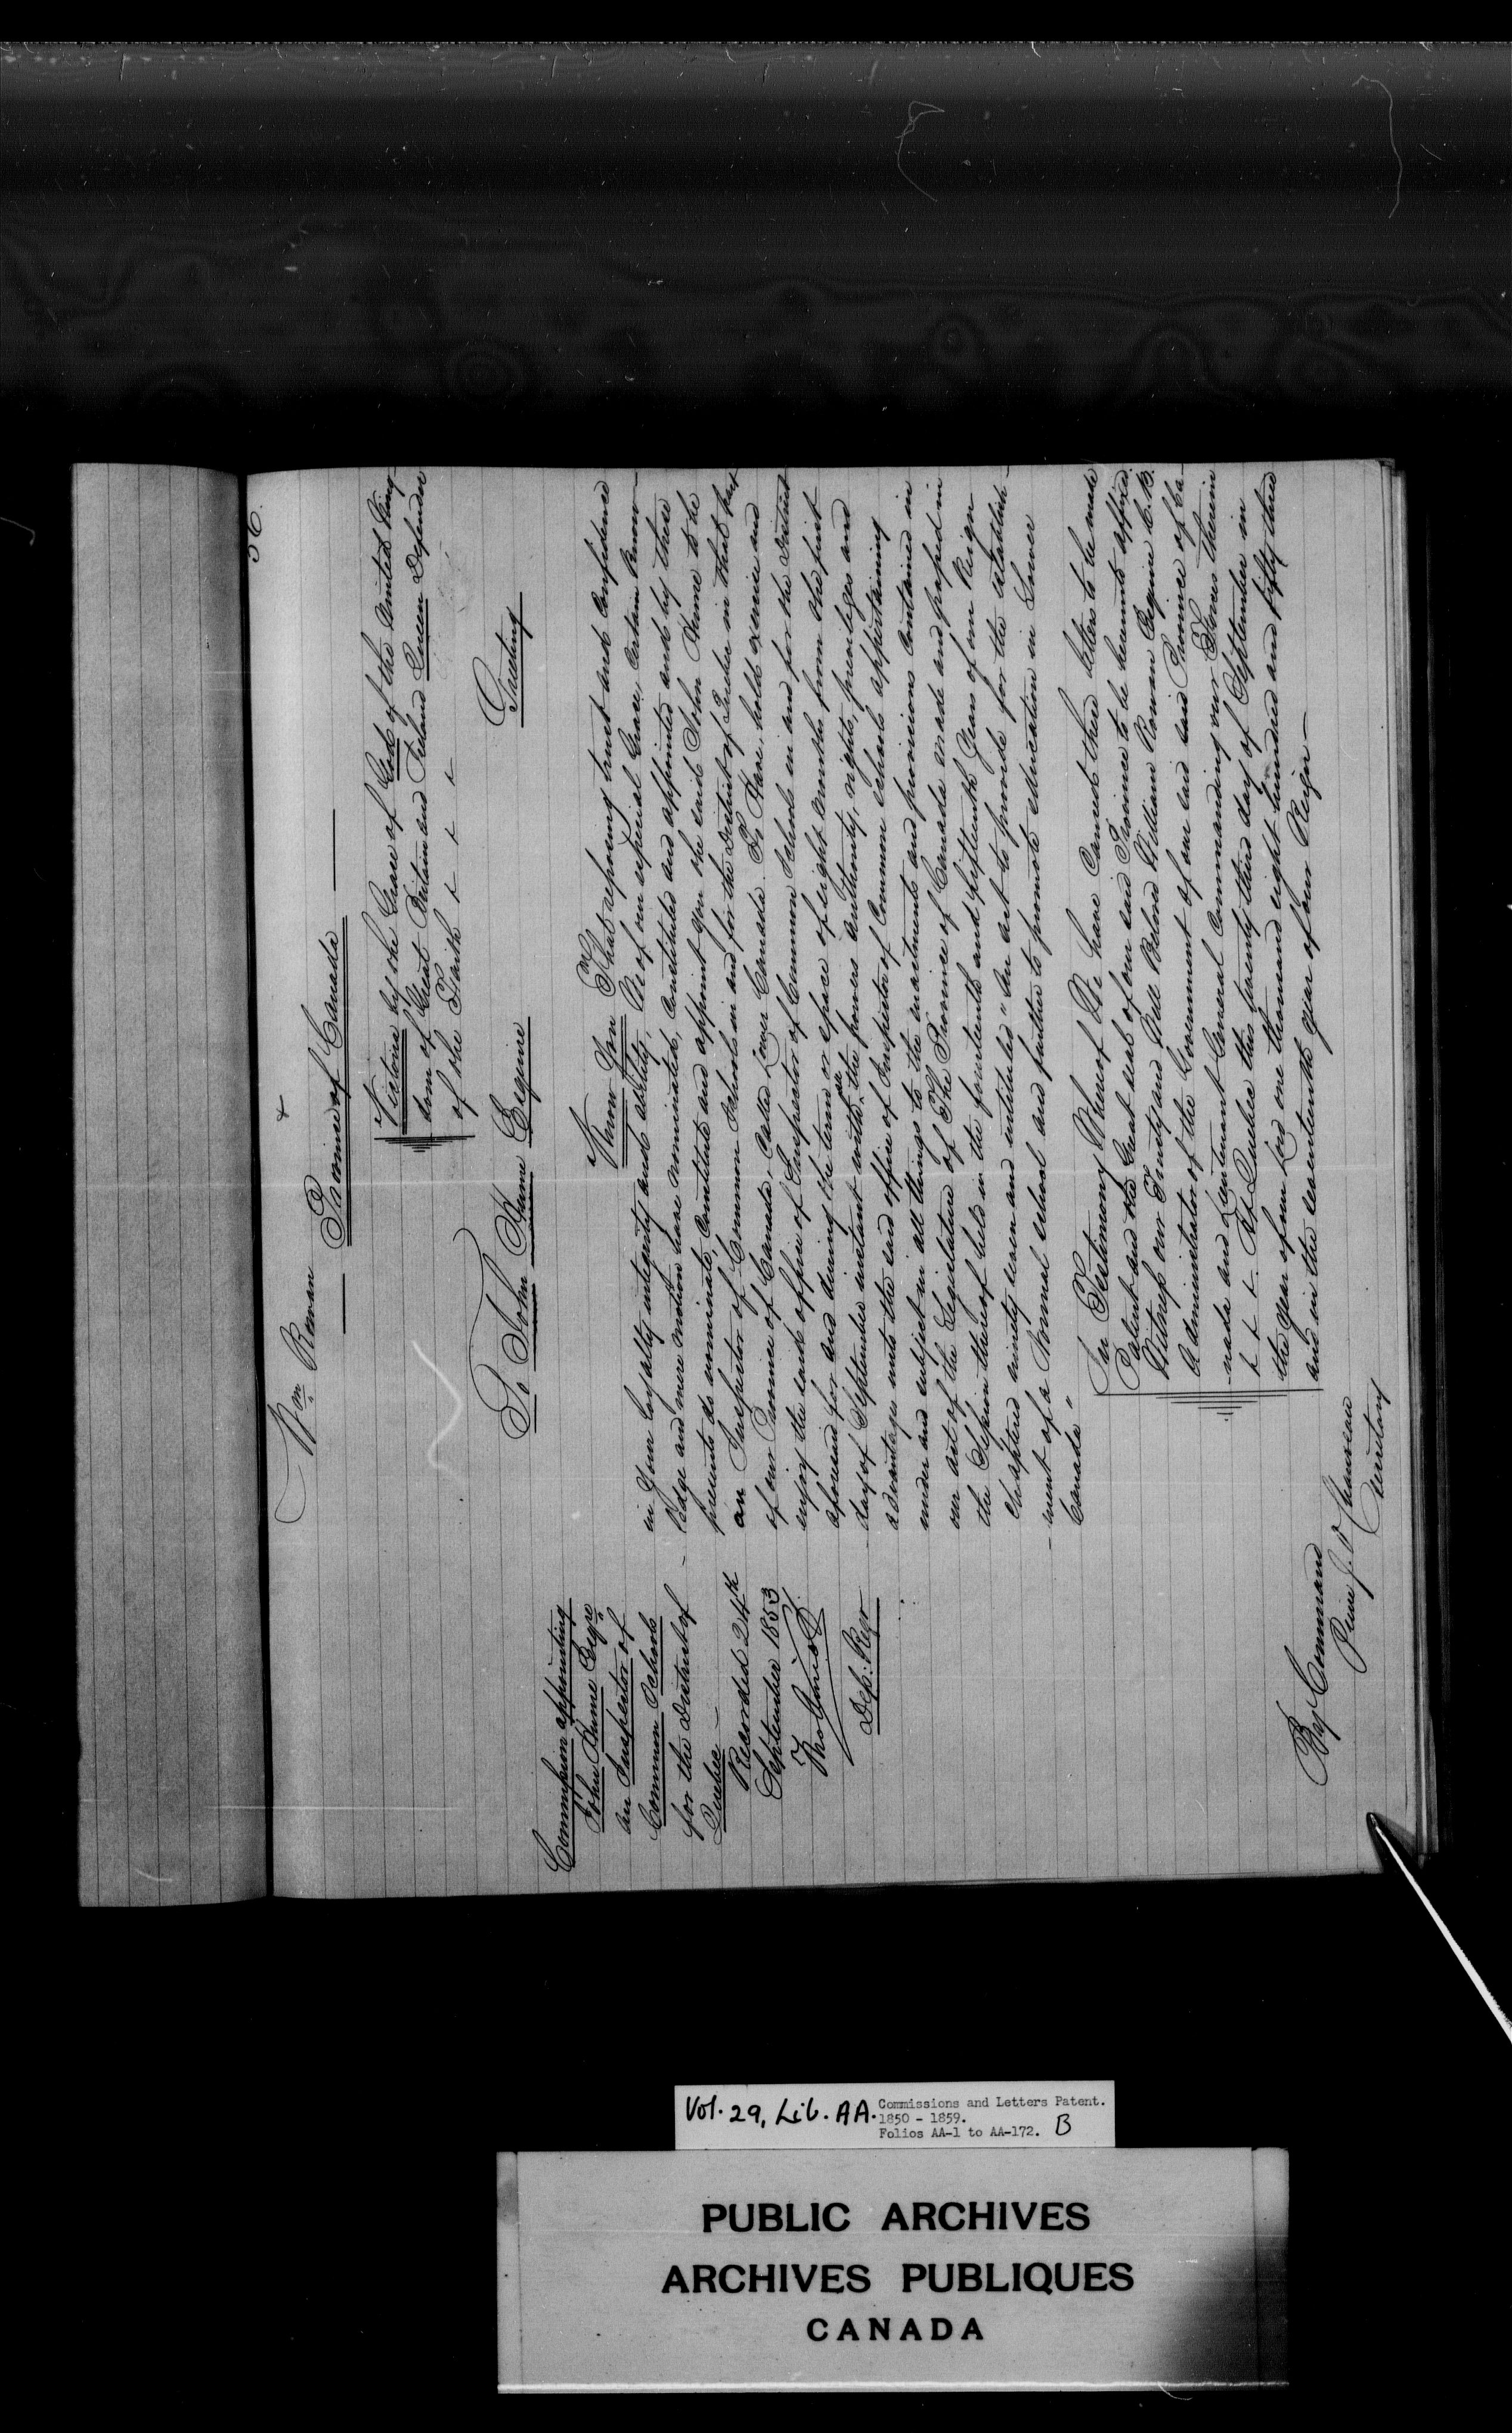 56.
Wm. Rowan
Province of Canada
Victoria by the Grace of God of the United King-
dom of Great Britain and Ireland Queen Defender
of the Faith & & &
To John Hume Esquire
Greeting
Commission appointing
John Hume Esqre
an Inspector of
Common Schools
for the District of
Quebec—
Recorded 24th
September 1853
Tho Amiot
Dep: Regr
Know You That reposing trust and confidence
in your loyalty integrity and ability, We of our especial Grace, certain know-
ledge and mere motion have nominated, constituted and appointed and by these
presents do nominate, constitute and appoint you the said John Hume to be
an Inspector of Common Schools in and for the District of Quebec in that part
of our Province of Canada called Lower Canada. To Have, hold exercise and
enjoy the said office of Inspector of Common Schools in and for the District
aforesaid for and during the term or space of eight months from the first
day of September instant with all the powers authority, rights, privileges and
advantages unto the said office of Inspector of Common schools appertaining
under and subject in all things to the enactments and provisions contained in
our act of the Legislature of the Province of Canada made and passed in
the Session thereof held in the fourteenth and fifteenth Years of our Reign
chaptered ninety seven and intituled "An act to provide for the establish-
-ment of a Normal school and further to promote education in Lower
Canada"
In Testimony Whereof We have caused these letters to be made
Patent and the Great seal of our said Province to be hereunto affixed.
Witness our Trusty and Well Beloved William Rowan Esquire C.B.
Administrator of the Government of our said Province of Ca-
nada and Lieutenant General commanding our Forces therein
& & &. At Quebec this twenty third day of September in
the year of our Lord one thousand eight hundred and fifty three
and in the seventeenth year of our Reign—
By Command
Pierre J. O. Chauveau
Secretary
Vol. 29, Lib. AA. Commissions and Letters Patent.
1850 - 1859.
Folios AA-1 to AA-172. B
PUBLIC ARCHIVES
ARCHIVES PUBLIQUES
CANADA